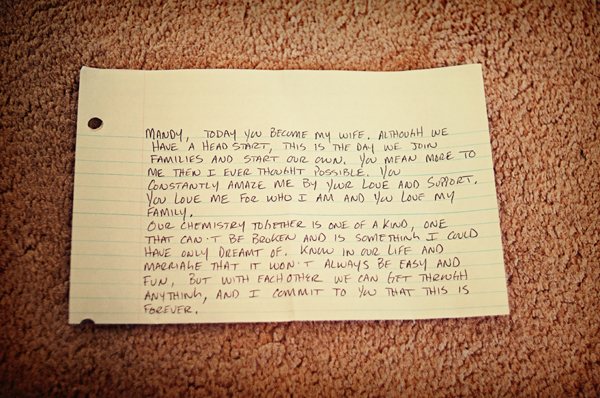 MANDY, TODAY YOU BECOME MY WIFE. ALTHOUGH WE
HAVE A HEAD START, THIS IS THE DAY WE JOIN
FAMILIES AND START OUR OWN. YOU MEAN MORE TO
ME THEN I EVER THOUGHT POSSIBLE. YOU
CONSTANTLY AMAZE ME BY YOUR LOVE AND SUPPORT.
YOU LOVE ME FOR WHO I AM AND YOU LOVE MY
FAMILY.
OUR CHEMISTRY TOGETHER IS ONE OF A KIND, ONE
THAT CAN'T BE BROKEN AND IS SOMETHING I COULD
HAVE ONLY DREAMT OF. KNOW IN OUR LIFE AND
MARRIAGE THAT IT WON'T ALWAYS BE EASY AND
FUN, BUT WITH EACHOTHER WE CAN GET THROUGH
ANYTHING, AND I COMMIT TO YOU THAT THIS IS
FOREVER.